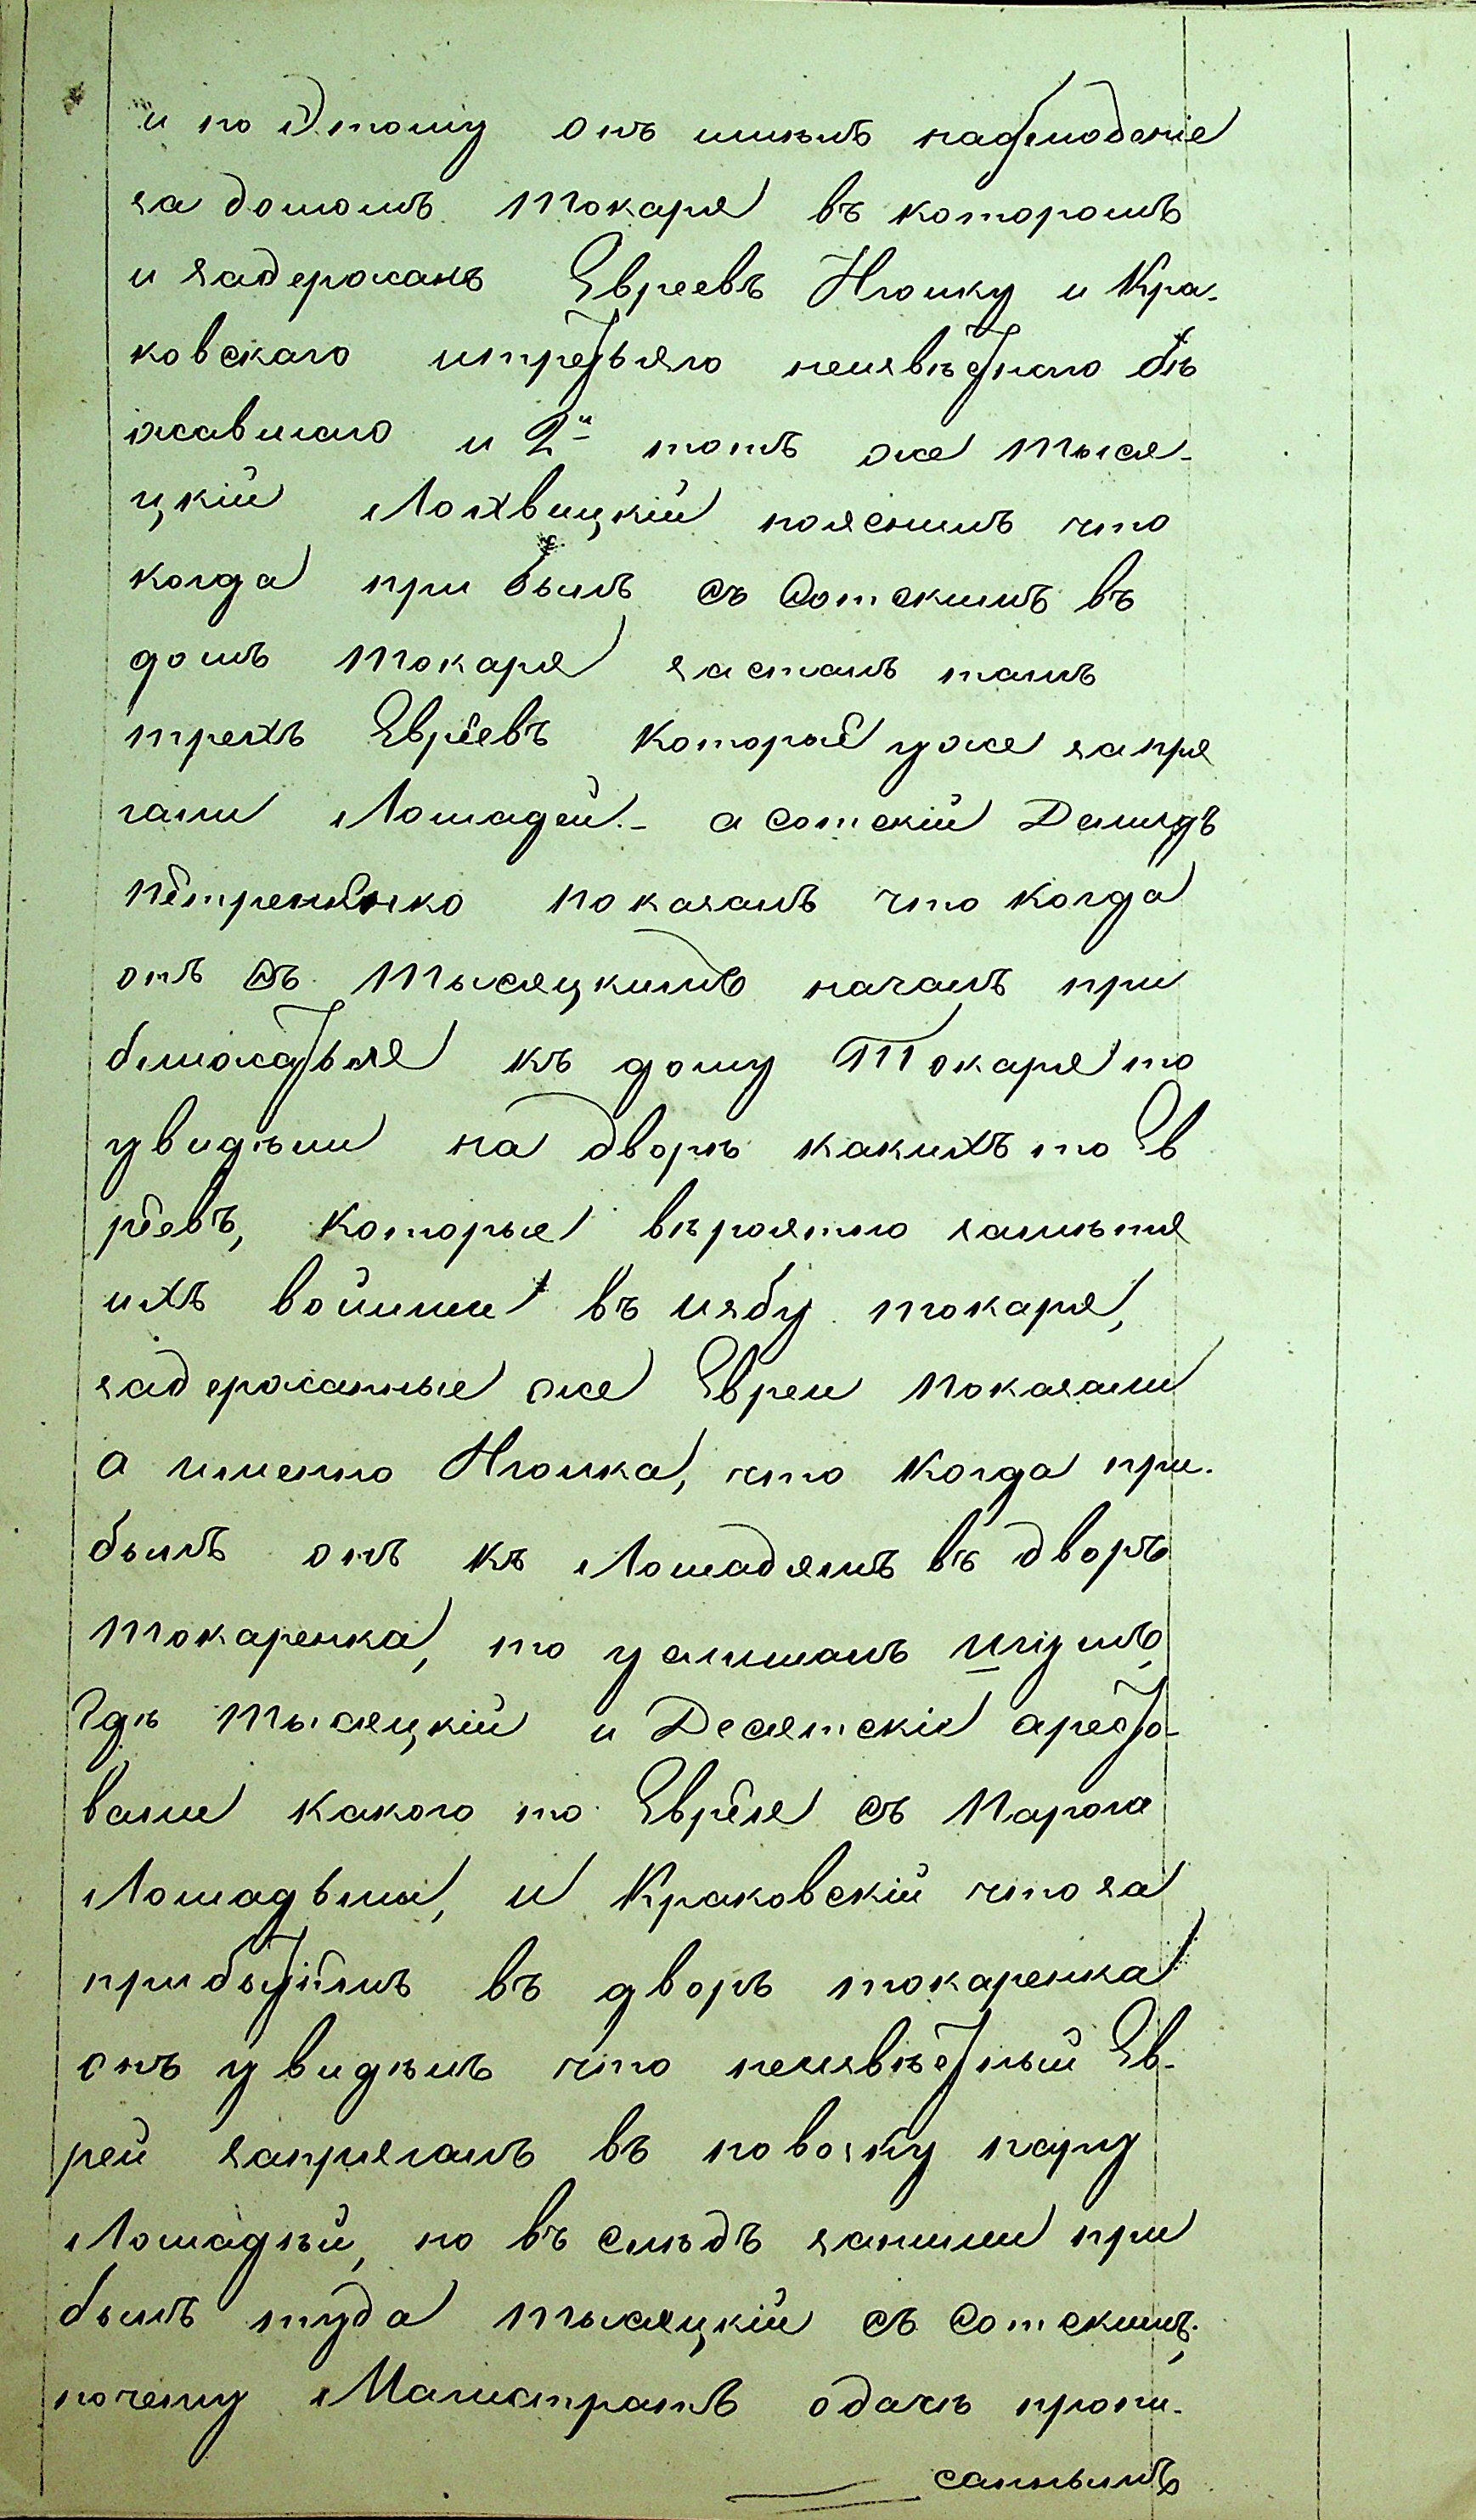 и по Этому онъ имѣлъ наблюденіе
за домомъ Токаря въ которомъ
и задержанъ Евреевъ Нюмку и Кра-
ковскаго итретьяго неизвѣстнаго бѣ
жавшаго и 2й тотъ же Тыся-
цкій Лохвицкій пояснилъ что
когда при былъ съ Сотскимъ въ
домъ Токаря засталъ тамъ
трехъ Евреевъ которые уже запря
гали Лошадей. - а Сотскій Демидъ
Петренко показалъ что когда
онъ съ Тысяцкимъ началъ при
ближаться къ дому Токаря то
увидѣли на дворѣ какихъ то Ев
реевъ, которые вѣроятно замѣтя
ихъ войшли въ избу токаря,
задержанные же Евреи показали
а именно Нюмка, что когда при-
былъ онъ къ Лошадямъ въ дворъ
Токаренка, то услишалъ шумъ,
Гдѣ Тысяцкій и Десятскіе аресто-
вали какого то Еврея съ Парога
Лошадьми, и Краковскій что за
прибытіемъ въ дворъ токаренка
онъ увидѣлъ что неизвѣстный Ев-
рей запрягалъ въ повозку пару
Лошадѣй, но въ слѣдъ заними при
былъ туда тысяцкій съ сотскимъ,
почему Магистратъ одачѣ пропи-
саннымъ